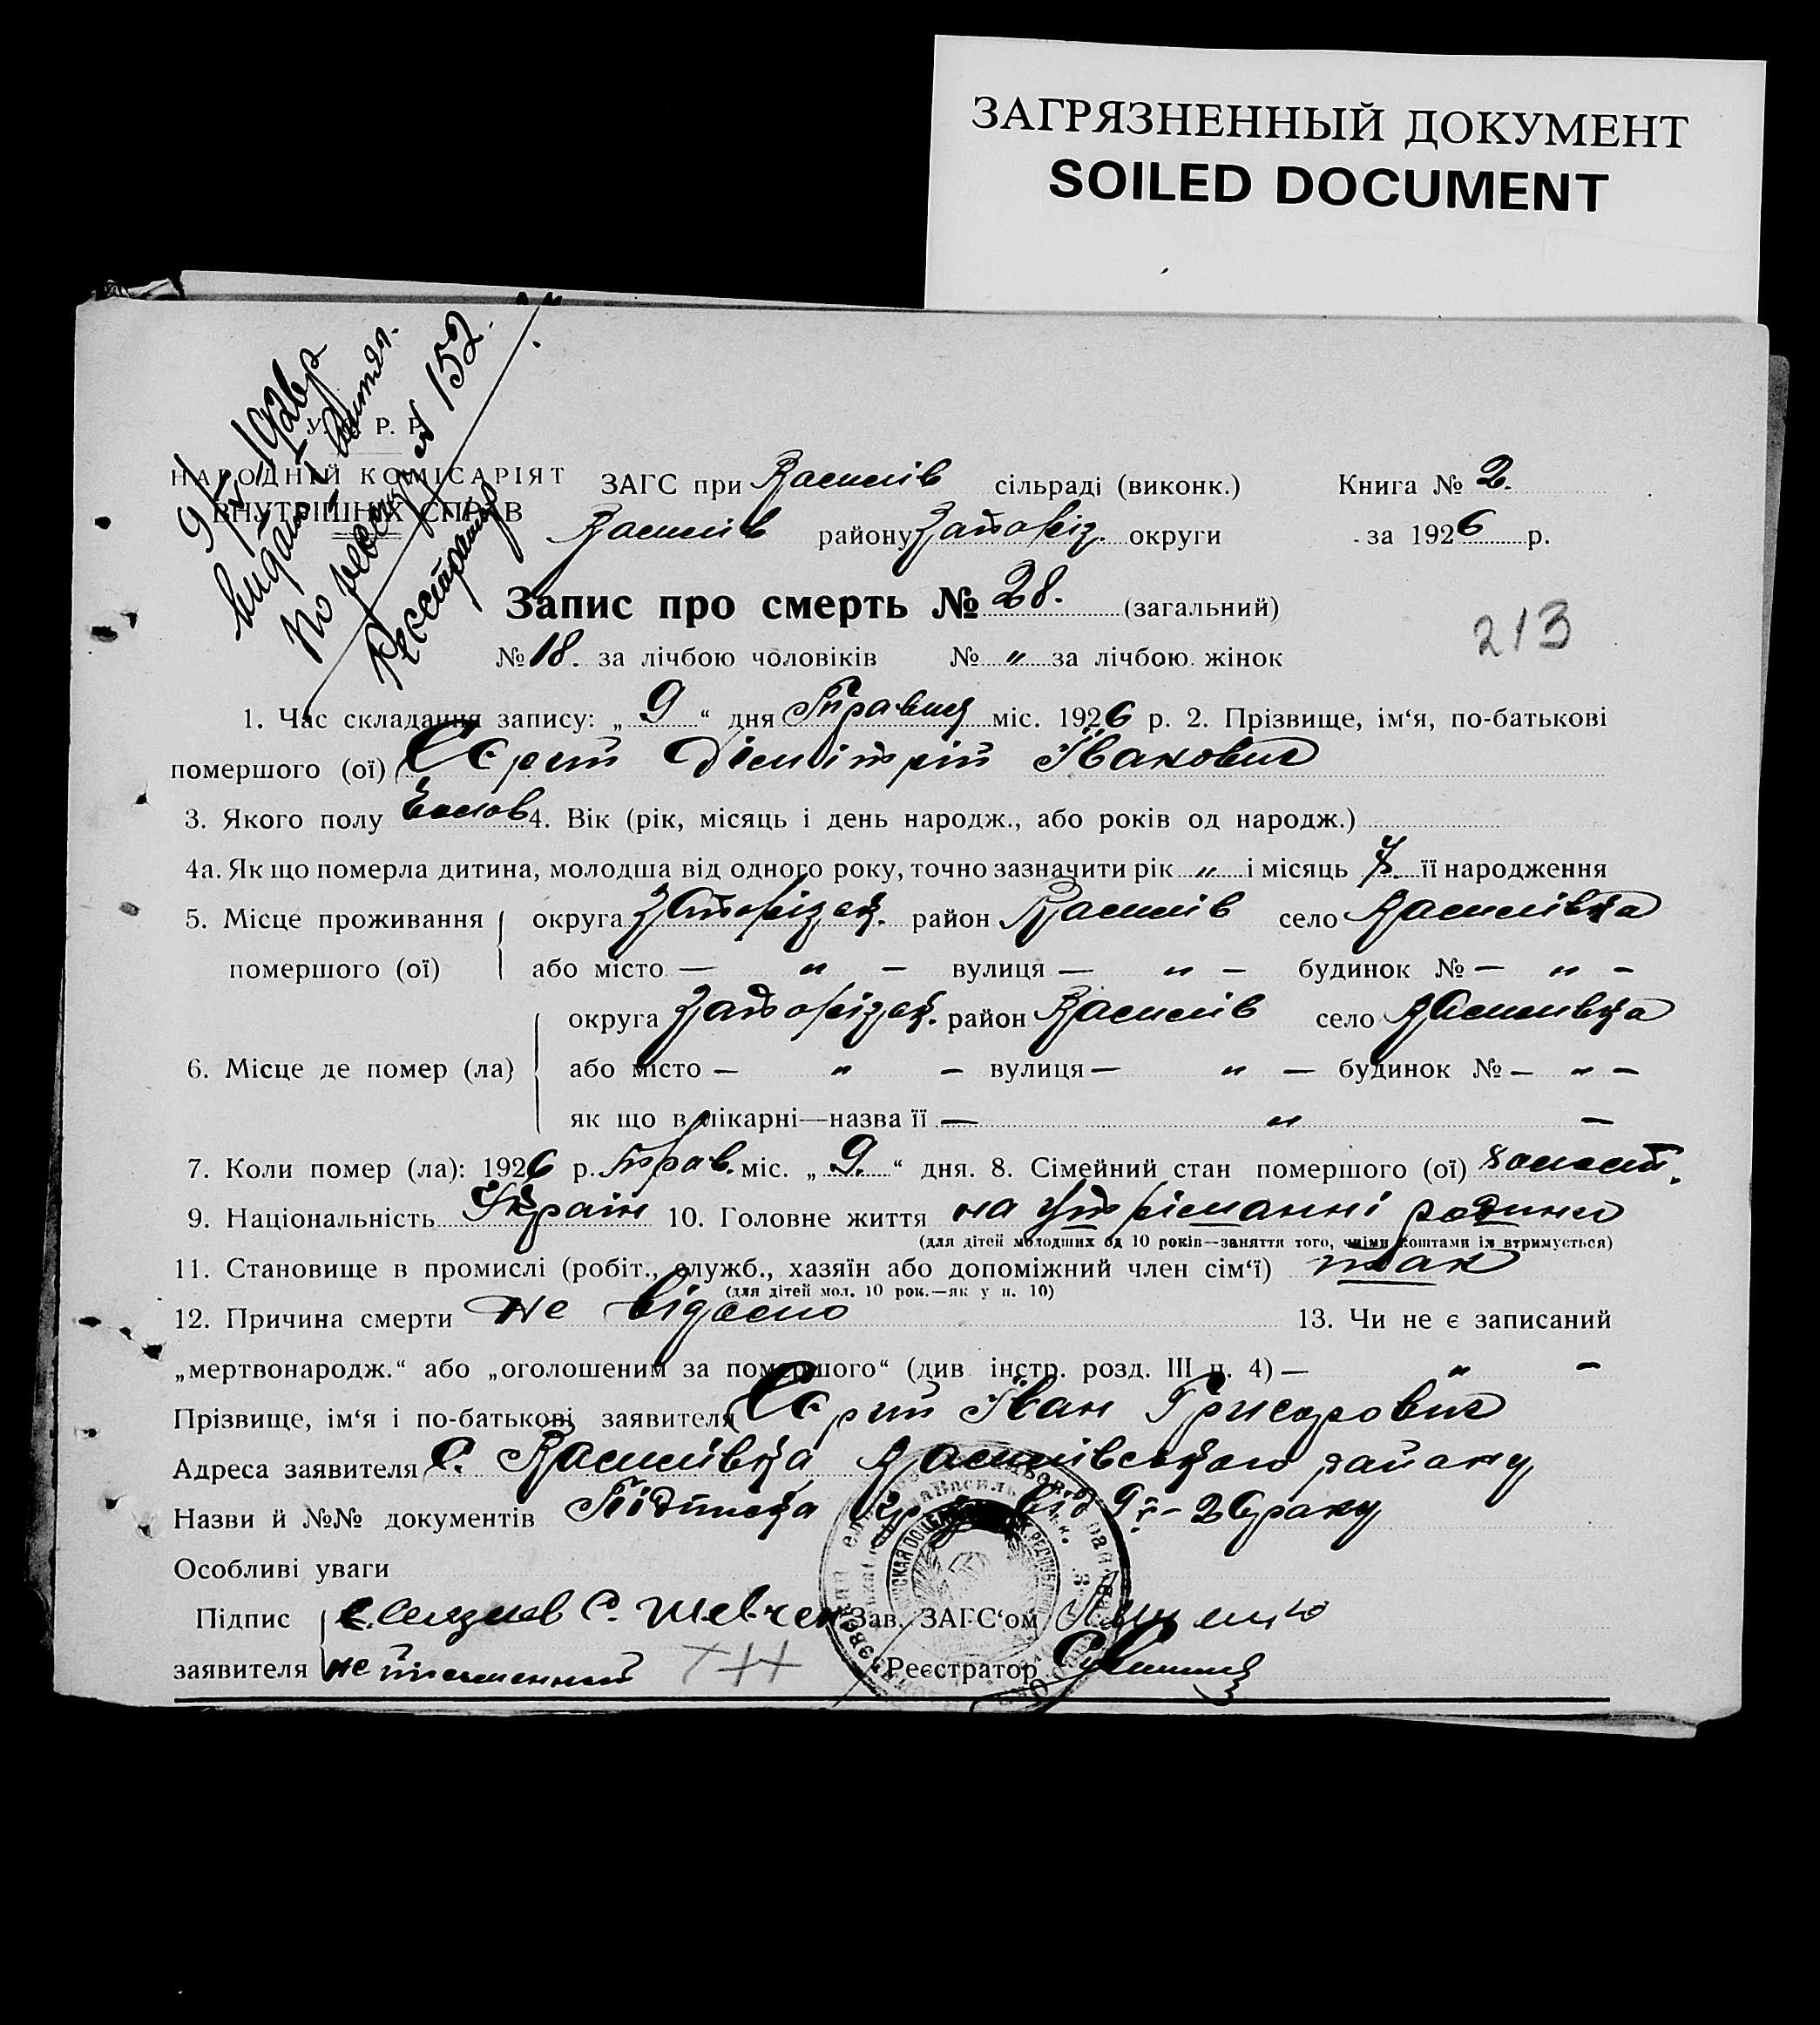 ЗАГРЯЗНЕННЫЙ ДОКУМЕНТ
SOILED DOCUMENT
9/V 1926 р
видано
по
№ 152.
У. Р. Р.
НАРОДНІЙ КОМІСАРІЯТ
ВНУТРІШНІХ СПРАВ
ЗАГС при Василів сільраді (виконк.) Книга № 2.
Василів району Запоріз. округи за 1926 р.
Запис про смерть № 28. (загальний)
213
№ 18. за лічбою чоловіків № „ за лічбою жінок
1. Час складання запису: „ 9 “ дня Травня міс. 1926 р. 2. Прізвище, ім‘я, по-батькові
помершого (ої) Сєрий Дімітрій Іванович
3. Якого полу Чолов 4. Вік (рік, місяць і день народж., або років од народж.)
4а. Як що померла дитина, молодша від одного року, точно зазначити рік „ і місяць її народження
5. Місце проживання округа Запорізьк. район Василів село Василівка
помершого (ої) або місто — „ — вулиця — „ — будинок № — „ —
округа Запорізьк. район Василів село Василівка
6. Місце де помер (ла) або місто — „ — вулиця — „ — будинок № — „ —
як що в лікарні—назва її — „ —
7. Коли помер (ла): 1926 р. Трав. міс. „ 9. “ дня. 8. Сімейний стан помершого (ої) холост.
9. Національність Україн 10. Головне життя на утріманні родини
(для дітей молодших од 10 років—заняття того, чиїми коштами їх втримується)
11. Становище в промислі (робіт., служб., хазяїн або допоміжний член сім‘ї) так
(для дітей мол. 10 рок.—як у п. 10)
12. Причина смерти не відомо 13. Чи не є записаний
„мертвонародж.“ або „оголошеним за помершого“ (див інстр. розд. III п. 4) — „ —
Прізвище, ім‘я і по-батькові заявителя Сєрий Іван Григорович
Адреса заявителя С. Василівка Василівського району
Назви й №№ документів Підписка від 9/V - 26 року
Особливі уваги
Підпис С. Шевчен Зав. ЗАГС‘ом
заявителя не письменний +++ Реєстратор